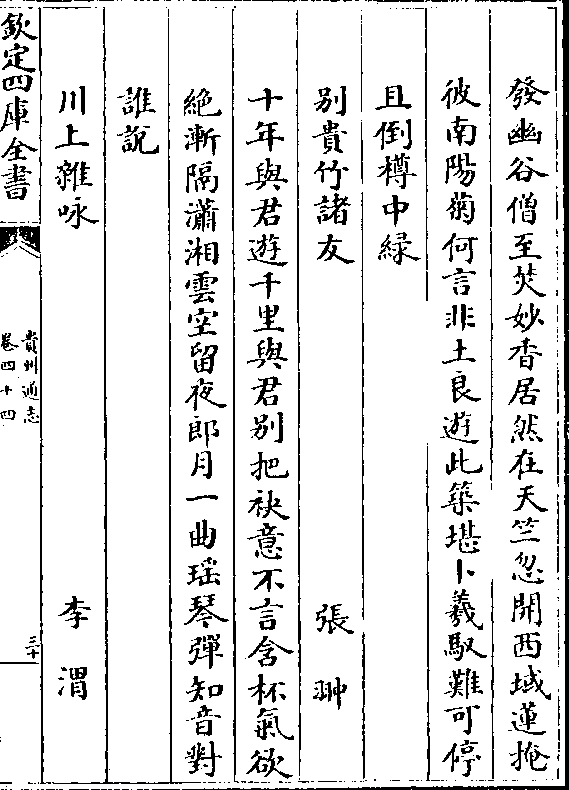 發幽谷僧至焚妙香居然在天竺忽開西域蓮掩
彼南陽菊何言非土良遊此築堪卜羲馭難可停
且倒樽中緑
别貴竹諸友
張翀
十年與君遊千里與君别把袂意不言含杯氣欲
絶漸隔瀟湘雲空留夜郎月一曲瑶琴彈知音對
誰說
川上雜咏
李渭
欽定四庫全書
貴州通志
卷四十四
三十